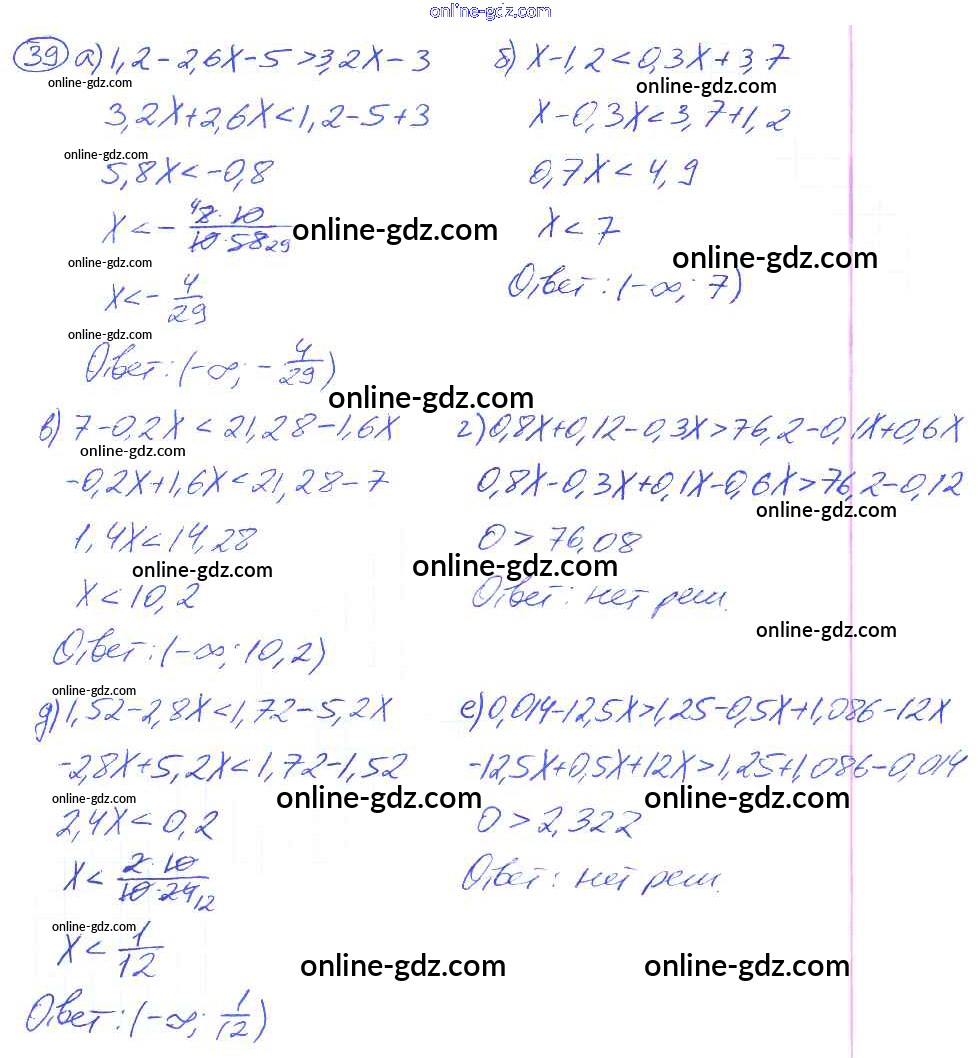 online-gdz.com
39 а) 1,2-2,6x-5>3,2x-3
online-gdz.com
3,2x+2,6x<1,2-5+3
online-gdz.com
5,8x<-0,8
x<- 4 8·10 / 10·58 29
online-gdz.com
online-gdz.com
x<- 4/29
online-gdz.com
Ответ: (-∞; - 4/29)
б) x-1,2<0,3x+3,7
online-gdz.com
x-0,3x<3,7+1,2
0,7x<4,9
x<7
online-gdz.com
Ответ: (-∞; 7)
online-gdz.com
в) 7-0,2x<21,28-1,6x
online-gdz.com
-0,2x+1,6x<21,28-7
1,4x<14,28
online-gdz.com
x<10,2
Ответ: (-∞; 10,2)
г) 0,8x+0,12-0,3x>76,2-0,1x+0,6x
0,8x-0,3x+0,1x-0,6x>76,2-0,12
online-gdz.com
0>76,08
online-gdz.com
Ответ: нет реш.
online-gdz.com
online-gdz.com
д) 1,52-2,8x<1,72-5,2x
-2,8x+5,2x<1,72-1,52
online-gdz.com
online-gdz.com
2,4x<0,2
x< 2·10 / 10·24 12
online-gdz.com
x< 1/12
online-gdz.com
Ответ: (-∞; 1/12)
е) 0,014-12,5x>1,25-0,5x+1,086-12x
-12,5x+0,5x+12x>1,25+1,086-0,014
online-gdz.com
0>2,322
Ответ: нет реш.
online-gdz.com